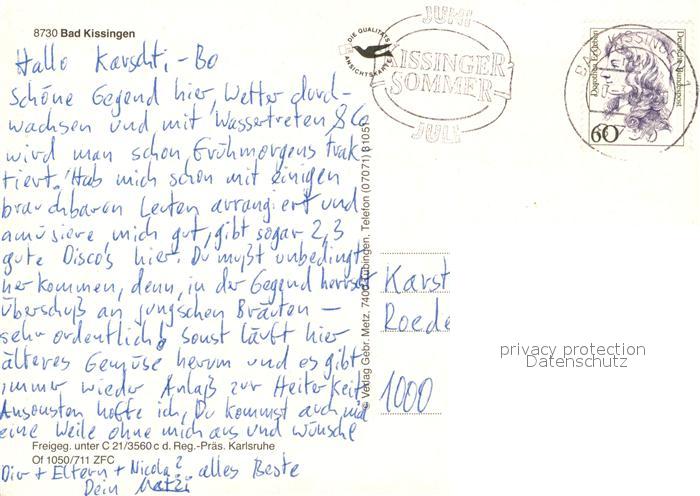 8730 Bad Kissingen
Hallo Karschti-Bo
schöne Gegend hier, Wetter durch-
wachsen und mit Wassertreten & Co
wird man schon frühmorgens trak
tiert. Hab mich schon mit einigen
brauchbaren Leuten arrangiert und
amüsiere mich gut, gibt sogar 2,3
gute Disco's hier. Du mußt unbedingt
herkommen, denn, in der Gegend herrscht
Überschuß an jungschen Bräuten –
sehr ordentlich! Sonst läuft hier
älteres Gemüse herum und es gibt
immer wieder Anlaß zur Heiterkeit
Ansonsten hoffe ich, Du kommst auch mal
eine Weile ohne mich aus und wünsche
Freigeg. unter C 21/3560 c d. Reg.-Präs. Karlsruhe
Of 1050/711 ZFC
Dir + Eltern + Nicola? alles Beste
Dein
DIE QUALITÄTS
ANSICHTSKARTE
JUNI
KISSINGER
SOMMER
JULI
BAD KISSINGEN 1
Deutsche Bundespost
60
© Verlag Gebr. Metz, 7400 Tübingen, Telefon (07071) 81055
Karst
Roede
1000
privacy protection
Datenschutz